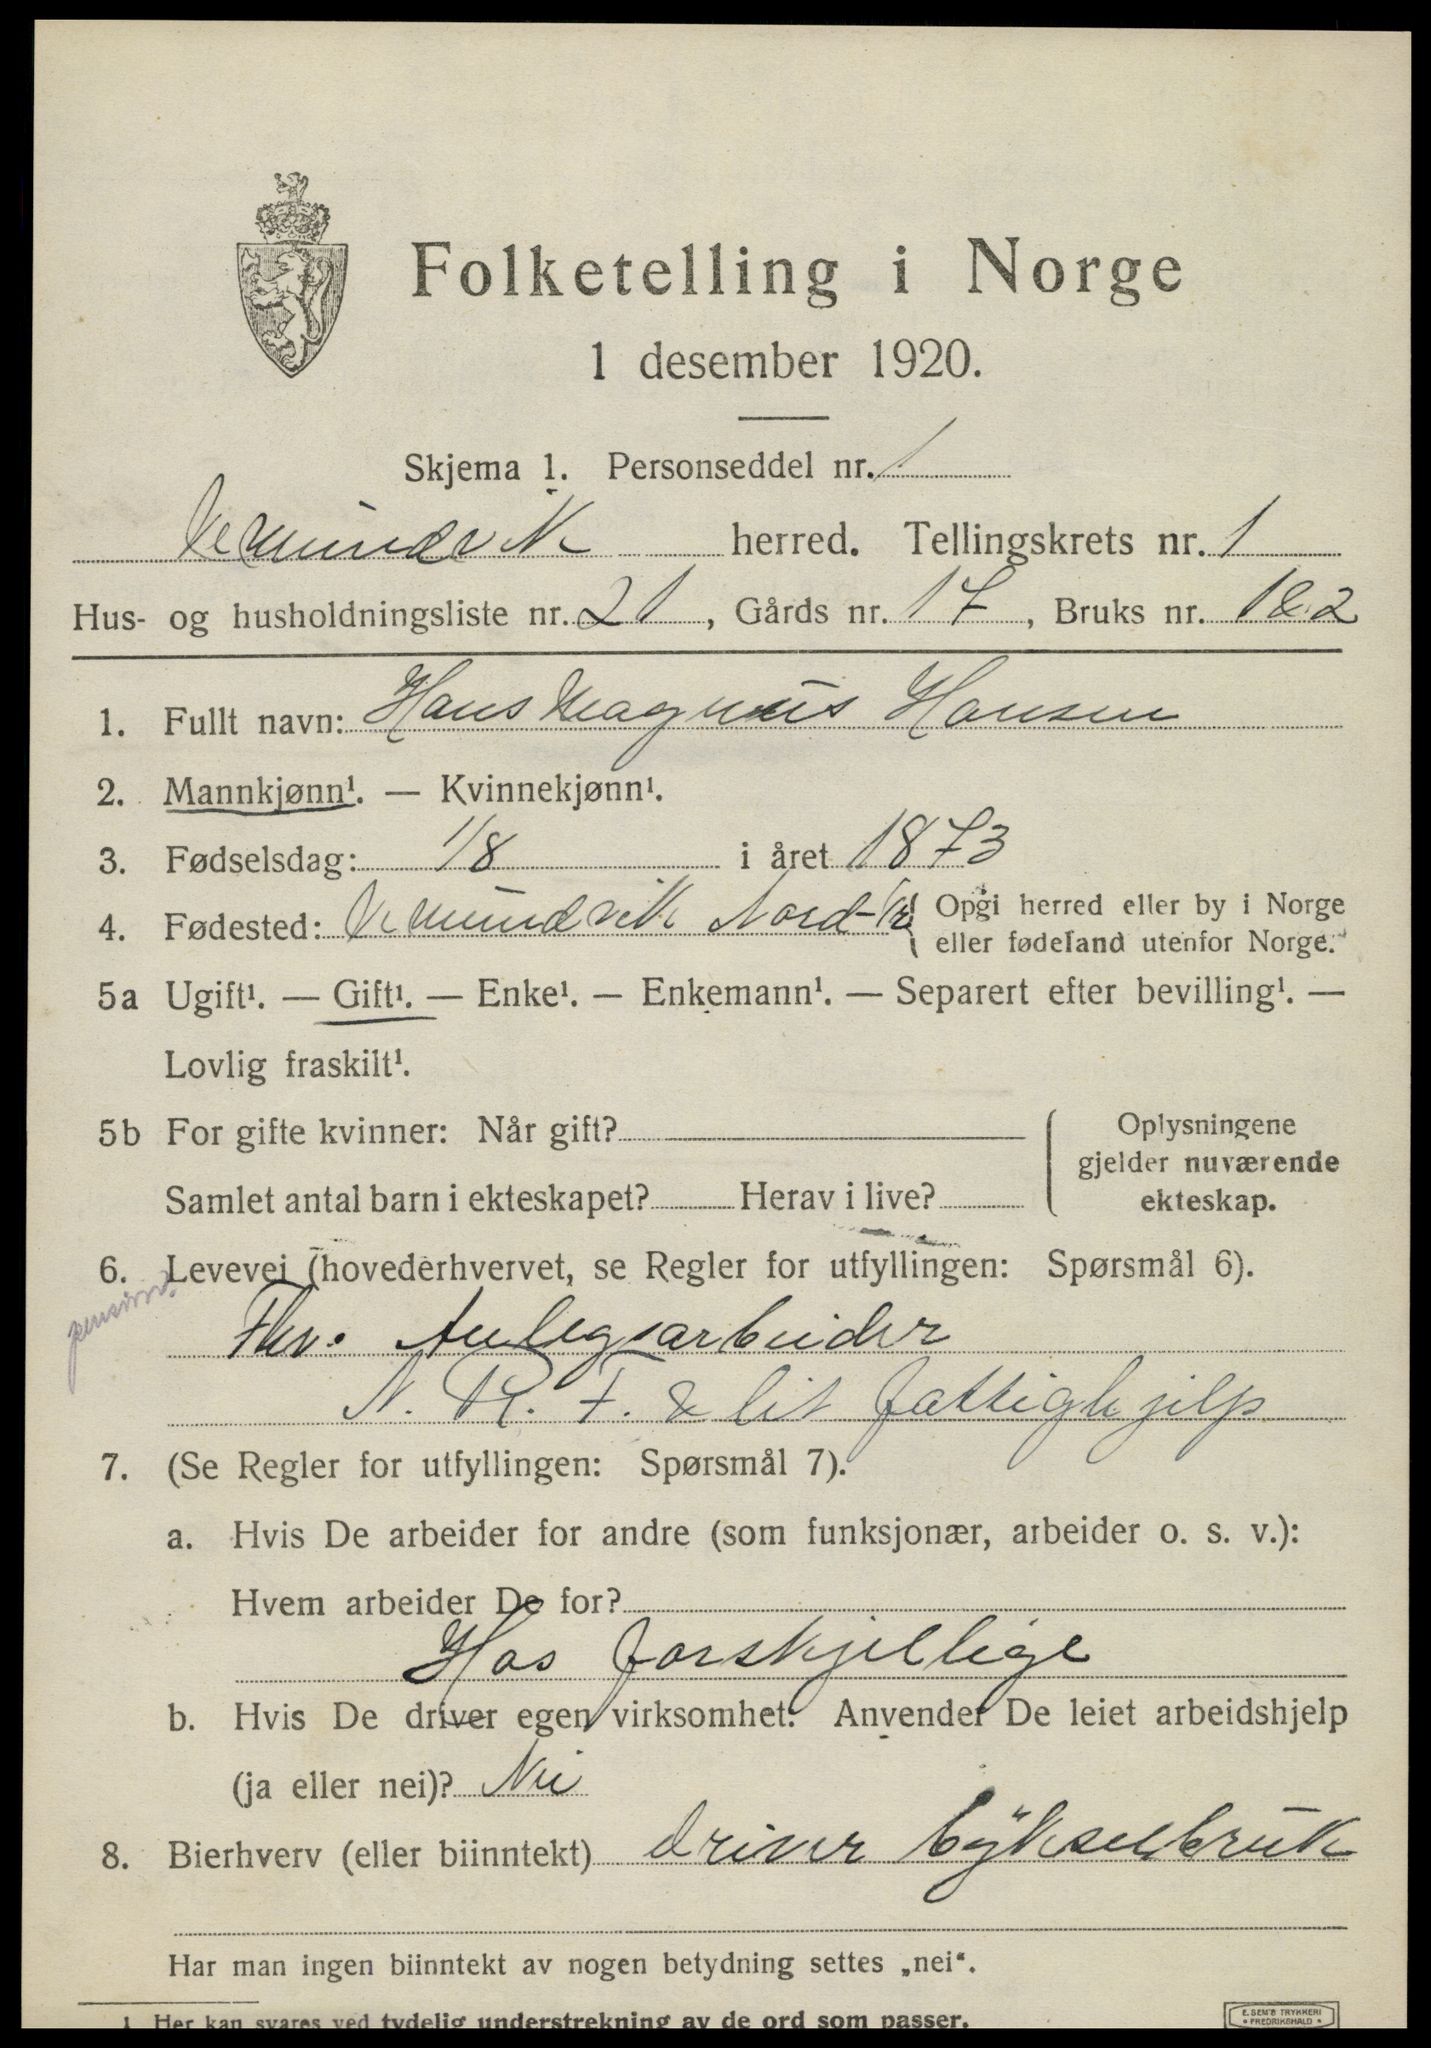 Folketelling i Norge
1 desember 1920.
Skjema 1. Personseddel nr. 1
Vemundvik herred. Tellingskrets nr. 1
Hus- og husholdningsliste nr. 21, Gårds nr. 17, Bruks nr. 1&2
1. Fullt navn: Hans Magnus Hansen
2. Mannkjønn¹. — Kvinnekjønn¹.
3. Fødselsdag: 1/8 i året 1873
4. Fødested: Vemundvik Nord-Tr { Opgi herred eller by i Norge
eller fødeland utenfor Norge.
5a Ugift¹. — Gift¹. — Enke¹. — Enkemann¹. — Separert efter bevilling¹. —
Lovlig fraskilt¹.
5b For gifte kvinner: Når gift? { Oplysningene
gjelder nuværende
Samlet antal barn i ekteskapet? Herav i live? ekteskap.
6. Levevei (hovederhvervet, se Regler for utfyllingen: Spørsmål 6).
Fhv. Anlegsarbeider
N. R. F. & lit fattighjelp
7. (Se Regler for utfyllingen: Spørsmål 7).
a. Hvis De arbeider for andre (som funksjonær, arbeider o. s. v.):
Hvem arbeider De for?
Hos forskjellige
b. Hvis De driver egen virksomhet: Anvender De leiet arbeidshjelp
(ja eller nei)? Nei
8. Bierhverv (eller biinntekt) driver bykselbruk
Har man ingen biinntekt av nogen betydning settes „nei“.
1 Her kan svares ved tydelig understrekning av de ord som passer.
E. SEM'S TRYKKERI
• FREDRIKSHALD •